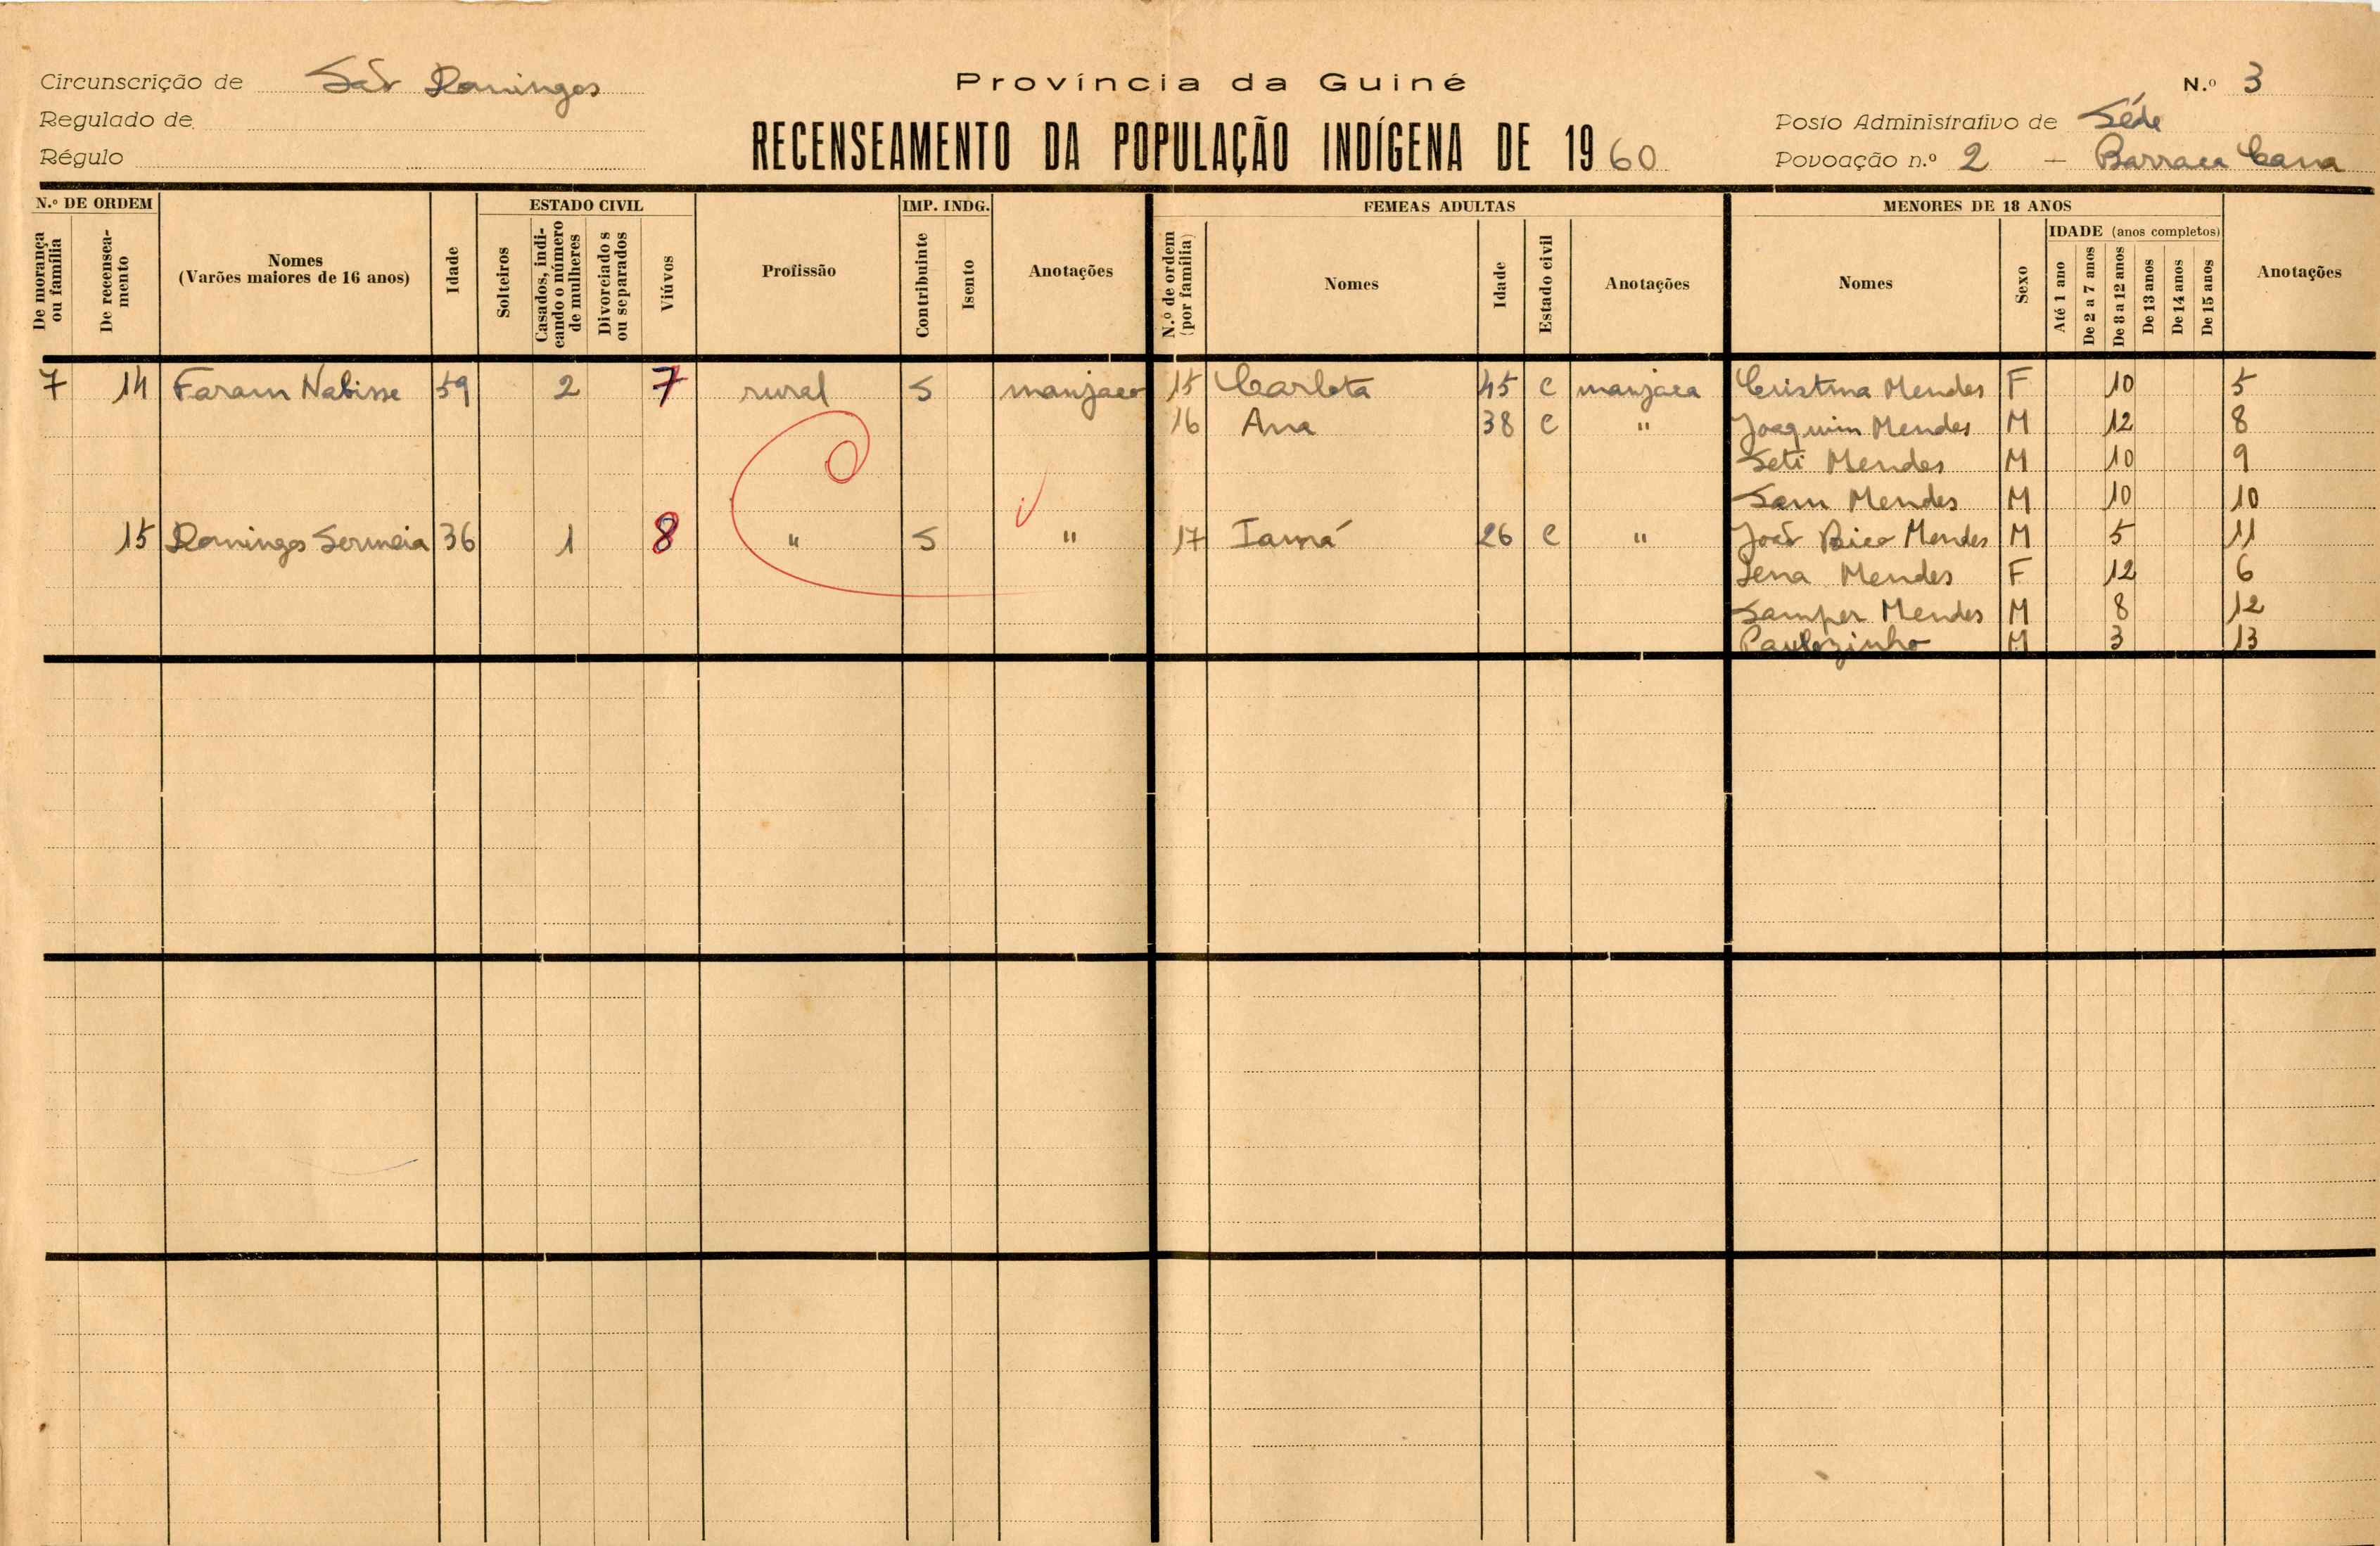 Circunscrição de São Domingos
Regulado de
Régulo
Província da Guiné
RECENSEAMENTO DA POPULAÇÃO INDÍGENA DE 1960
N.º 3
Posto Administrativo de Séde
Povoação n.º 2 – Barraca
N.º DE ORDEM
De morança ou família
De recenseamento
Nomes
(Varões maiores de 16 anos)
Idade
ESTADO CIVIL
Solteiros
Casados, indicando o número de mulheres
Divorciados ou separados
Viúvos
Profissão
IMP. INDG.
Contribuinte
Isento
Anotações
FEMEAS ADULTAS
N.º de ordem (por família)
Nomes
Idade
Estado civil
Anotações
MENORES DE 18 ANOS
Nomes
Sexo
IDADE (anos completos)
Até 1 ano
De 2 a 7 anos
De 8 a 12 anos
De 13 anos
De 14 anos
De 15 anos
Anotações
7 14 Faram Nabisse 59 2 7 rural S manjaco 15 Carlota 45 C manjaca Cristina Mendes F 10 5
16 Ana 38 C " Joaquim Mendes M 12 8
Seti Mendes M 10 9
Sam Mendes M 10 10
15 Domingos 36 1 8 " S " 17 26 C " João Mendes M 5 11
Mendes F 12 6
Samper Mendes M 8 12
Paulozinho M 3 13